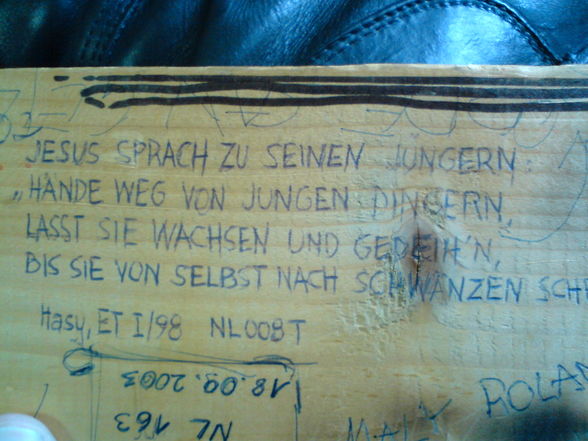 JESUS SPRACH ZU SEINEN JÜNGERN:
„HÄNDE WEG VON JUNGEN DINGERN,
LASST SIE WACHSEN UND GEDEIH'N,
BIS SIE VON SELBST NACH SCHWÄNZEN SCHR
Hasy, ET I/98 NL008T
18.09.2003
NL 163
MALX ROLAN